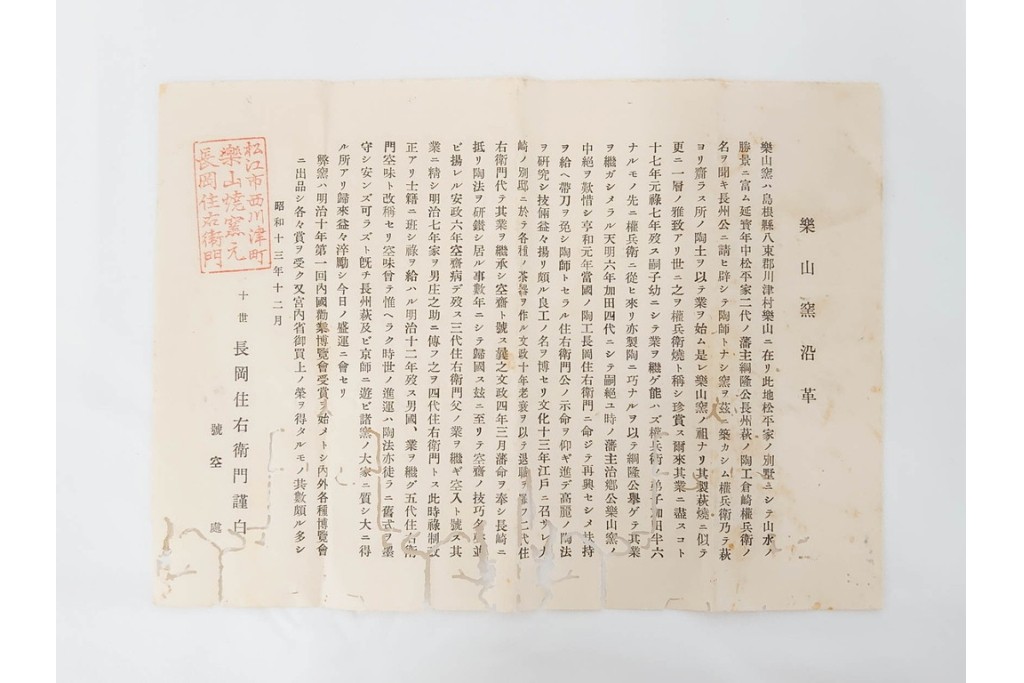 樂山窯沿革
樂山窯ハ島根縣八束郡川津村樂山ニ在リ此地松平家ノ別墅ニシテ山水ノ
勝景ニ富ム延寶年中松平家二代ノ藩主綱隆公長州萩ノ陶工倉崎權兵衞ノ
名ヲ聞キ長州公ニ請ヒ辟シテ陶師トナシ窯ヲ茲ニ築カシム權兵衞乃テ萩
ヨリ齎ラス所ノ陶土ヲ以テ業ヲ始ム是レ樂山窯ノ祖ナリ其製萩燒ニ似テ
更ニ一層ノ雅致アリ世ニ之ヲ權兵衞燒ト稱シ珍賞ス爾來其業ニ盡スコト
十七年元祿七年歿ス嗣子幼ニシテ業ヲ繼グ能ハズ權兵衞ノ弟子加田半六
ナルモノ先ニ權兵衞ニ從ヒ來リ亦製陶ニ巧ナルヲ以テ綱隆公擧ゲテ其業
ヲ繼ガシメラル天明六年加田四代ニシテ嗣絕ユ時ノ藩主治鄕公樂山窯ノ
中絕ヲ歎惜シ享和元年當國ノ陶工長岡住右衞門ニ命ジテ再興セシメ扶持
ヲ給ヘ帶刀ヲ免シ陶師トセラル住右衞門公ノ示命ヲ仰ギ進デ高麗ノ陶法
ヲ硏究シ技倆益々揚リ頗ル良工ノ名ヲ博セリ文化十三年江戶ニ召サレ大
崎ノ別邸ニ於テ各種ノ茶器ヲ作ル文政十年老衰ヲ以テ退職ヲ 二代住
右衞門代テ其業ヲ繼承シ空齋ト號ス 之文政四年三月藩命ヲ奉シ長崎ニ
抵リ陶法ヲ硏鑽シ居ル事數年ニシテ歸國ス玆ニ至リテ空齋ノ技巧名聲並
ビ揚レル安政六年空齋病デ歿ス三代住右衞門父ノ業ヲ繼ギ空入ト號ス其
業ニ精シ明治七年家ヲ男庄之助ニ傳フ之ヲ四代住右衞門トス此時祿制改
正アリ士籍ニ班シ祿ヲ給ハル明治十二年歿ス男國、業ヲ繼グ五代住右衞
門空味ト改稱セリ空味曾テ惟ヘラク時世ノ進運ハ陶法亦徒ラニ舊式ヲ墨
守シ安ンズ可ラズト旣チ長州萩及ビ京師ニ遊ビ諸窯ノ大家ニ質シ大ニ得
ル所アリ歸來益々淬勵シ今日ノ盛運ニ會セリ
弊窯ハ明治十年第一回內國勸業博覽會受賞ヲ始メトシ內外各種博覽會
ニ出品シ各々賞ヲ受ク又宮內省御買上ノ榮ヲ得タルモノ其數頗ル多シ
昭和十三年十二月
十世 長岡住右衞門謹白
號空處
松江市西川津町
樂山燒窯元
長岡住右衛門